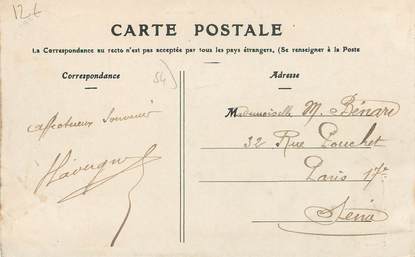 12€
CARTE POSTALE
La Correspondance au recto n'est pas acceptée par tous les pays étrangers, (Se renseigner à la Poste
Correspondance
54)
Adresse
Mademoiselle M. Bénard
32 Rue Pouchet
Paris 17e
Seine
affectueux Souvenir